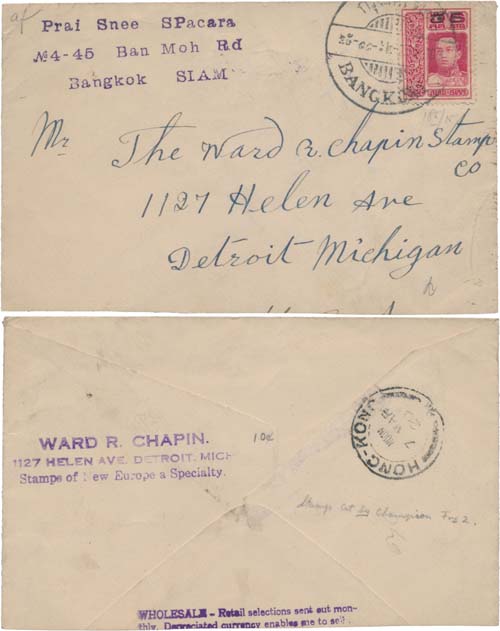 Prai Snee SPacara
№4-45 Ban Moh Rd
Bangkok SIAM
BANGKOK
Mr The Ward R. Chapin Stamp
Co
1127 Helen Ave
Detroit Michigan
WARD R. CHAPIN.
1127 HELEN AVE. DETROIT, MICH
Stamps of New Europe a Specialty.
10¢
HONG-KONG
7
Stamps Cat by Champion Frs 2.
WHOLESALE - Retail selections sent out mon-
thly. Depreciated currency enables me to sell.